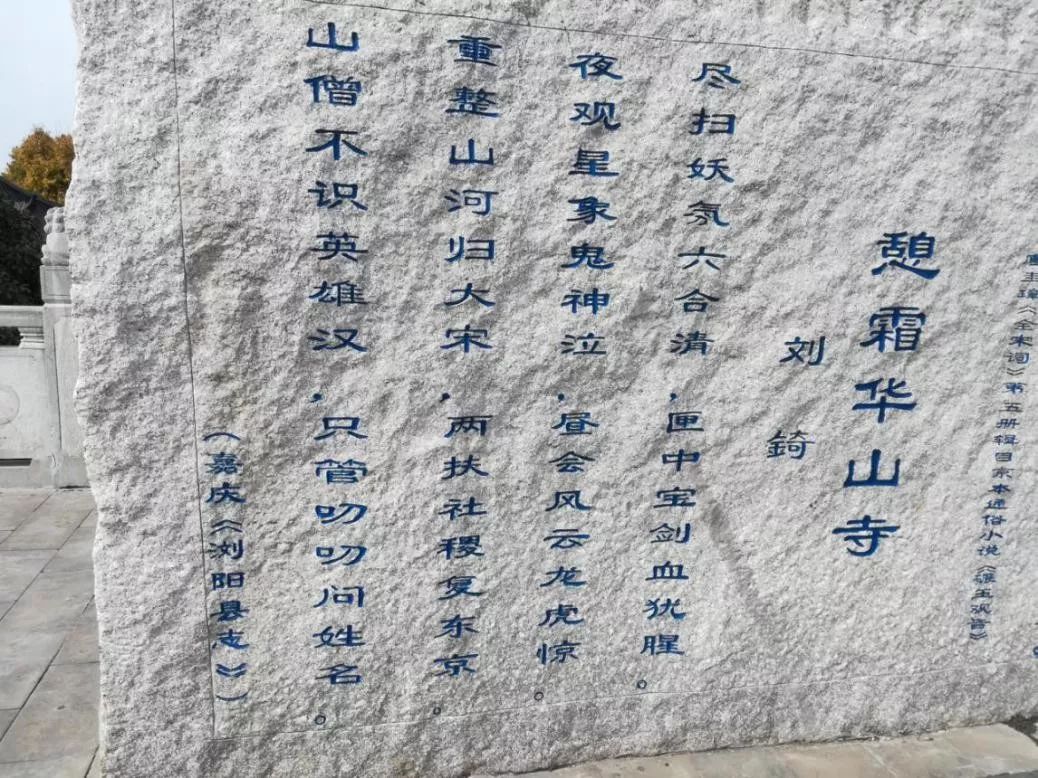 唐圭璋《全宋词》第五册辑自京本通俗小说《碾玉观音》
憩霜华山寺
刘锜
尽扫妖氛六合清，匣中宝剑血犹腥。
夜观星象鬼神泣，昼会风云龙虎惊。
重整山河归大宋，两扶社稷复东京。
山僧不识英雄汉，只管叨叨问姓名。
（嘉庆《浏阳县志》）